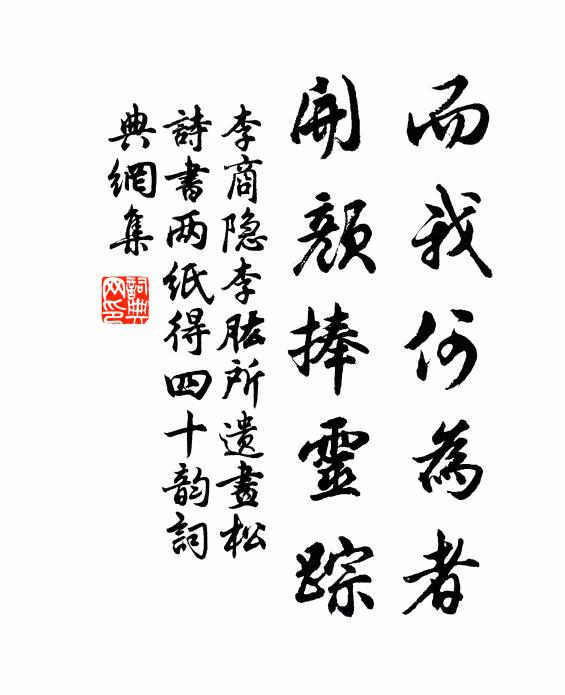 而我何為者
開顏捧靈踪
李商隐李肱所遺畫松
詩書两紙得四十韵詞
典網集
詞典
网印